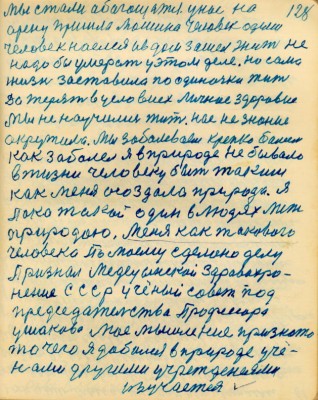 128
Мы стали абагощятся унас на
арену пришла машина человек один
человек наелся ивдом зашел жить не
надо бы умерать уэтом деле, но сама
жизнь заставила по одиночки жить
Мы не научились жить, нас не знание
окружила. Мы заболеваем крепко болеем
как заболел я в природе не бывало
вжизни человеку быть таким
как меня создала природа. я
пока такой один влюдях
природою, меня как такового
человека По моему сделано делу
Признал Медецинской Здравоохро-
нение СССР учёный совет под
председателства Професора
ушакова Мое мышление признато
то чего я добился в природе учё-
ными другими учреждениями
изучается